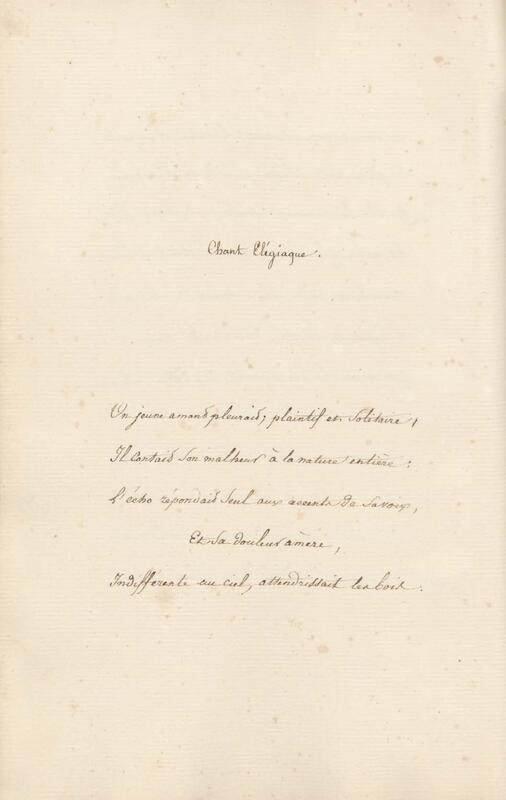 Chant Elégiaque.
Un jeune amant pleurait; plaintif et solitaire,
Il contait son malheur à la nature entière:
L'écho répondait seul aux accents de sa voix,
Et sa douleur amère,
Indifférente au ciel, attendrissait les bois.